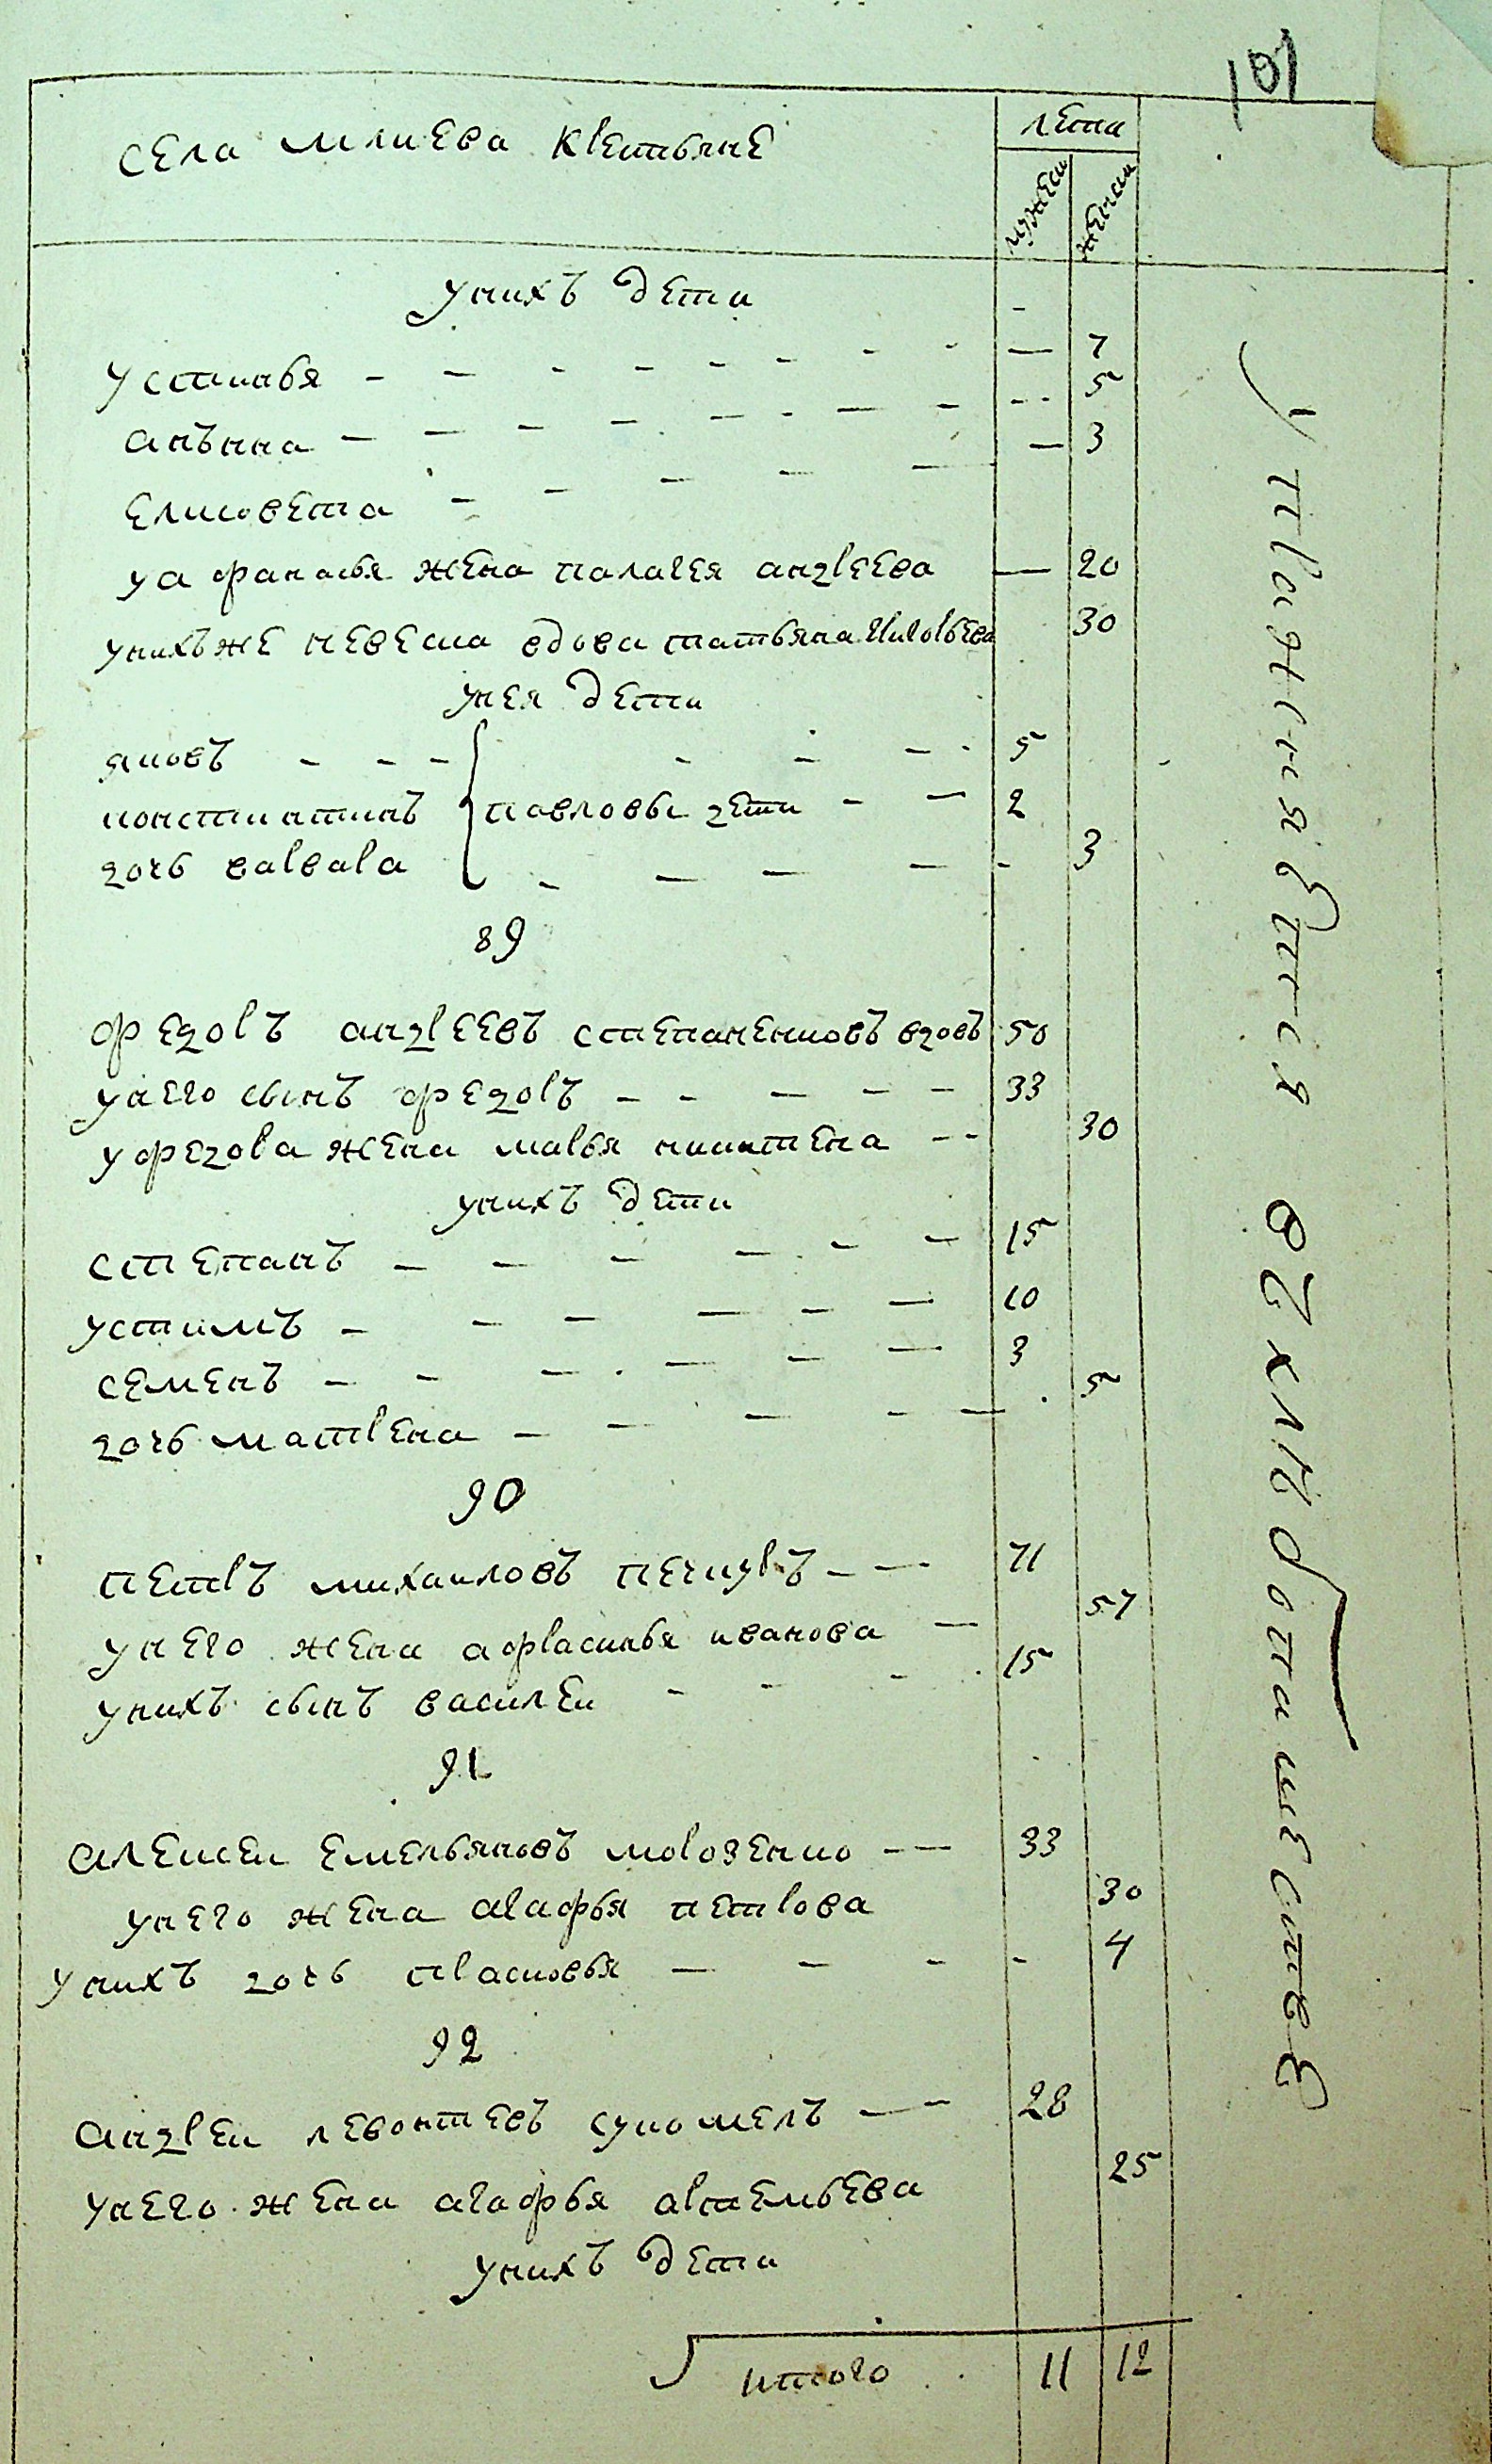 101
села млиева крестьяне
лета
мужеск
женск
уних дети
устинья - - - - - - - - — 7
анънна — — — — — - — - -- 5
елисовета - - - - — — 3
уафанасья жена палагея андреева — 20
унихъже невеска вдова татьяна григорьева 30
унея дети
яковъ - - - - - - - 5
константинъ павловы дети - — 2
дочь варвара - — — — - 3
89
федоръ андреевъ степаненковъ вдовъ 50
унего сынъ федоръ - - — - - 33
уфедора жена марья никитена - - 30
унихъ дети
степанъ - - - - - - 15
устимъ - - - — - — 10
семенъ - - - - — - — 3
дочь матрена - - — - — 5
90
петръ михаиловъ печкуръ - — 71
унего жена афрасинья иванова — 57
унихъ сынъ василеи - - - 15
91
алексеи емельяновъ морозенко - — 33
унего жена агафья петрова 30
унихъ дочь прасковья — - - - 4
92
андреи левонтиевъ сукомелъ — - 28
унего жена агафья артемьева 25
унихъ дети
итого 11 12
упражняется
в хлебопашестве